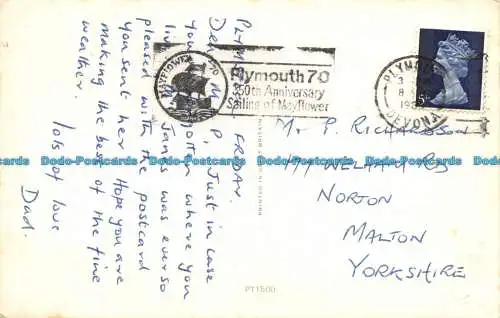 PLYMOUTH FRIDAY.
Dear M & P, Just in case
you
live
Janus was ever so
pleased with the postcard
you sent her. Hope you are
making the best of the fine
weather. lots of love
Dad.
MAYFLOWER '70
Plymouth 70
350th Anniversary
Sailing of Mayflower
PLYMOUTH
DEVON
Mr P. RICHARDSON
RD
NORTON
MALTON
YORKSHIRE
PRINTED IN GREAT BRITAIN
PT1500
Dodo-Postcards Dodo-Postcards Dodo-Postcards Dodo-Postcards Dodo-Postcards Dodo-Postcards